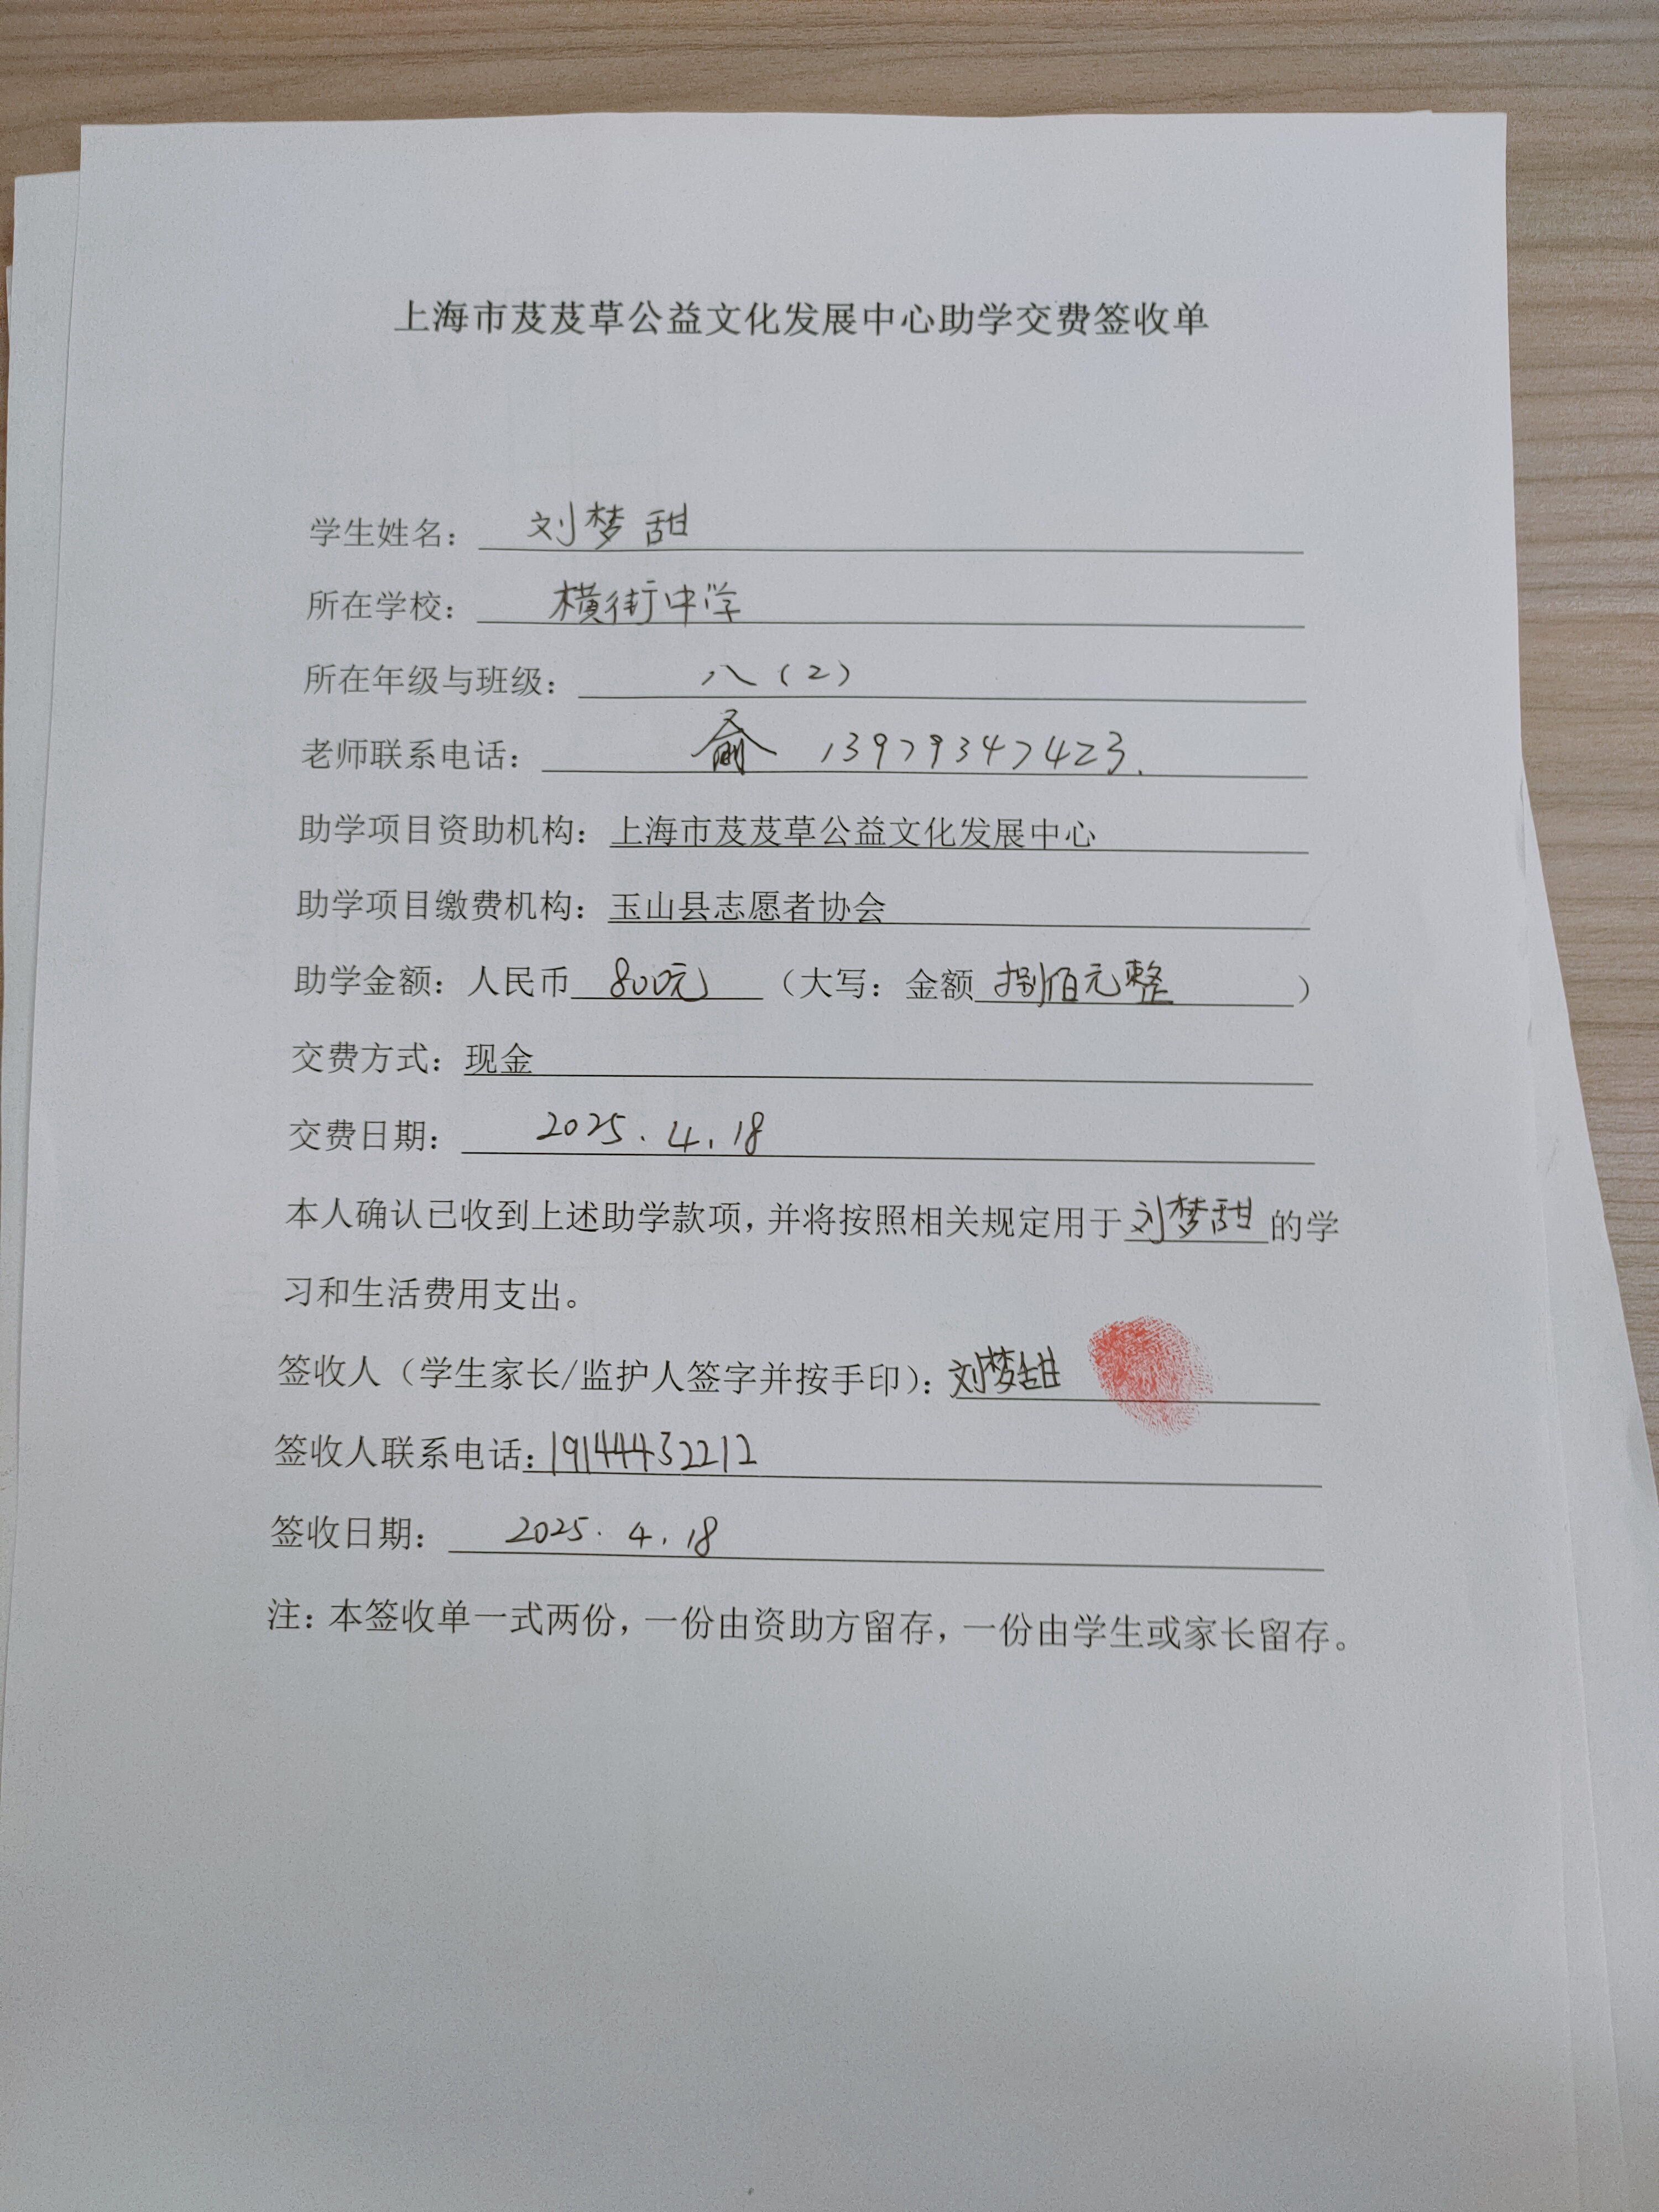 上海市芨芨草公益文化发展中心助学交费签收单
学生姓名：刘梦甜
所在学校：横街中学
所在年级与班级：八（2）
老师联系电话：俞 13979347423.
助学项目资助机构：上海市芨芨草公益文化发展中心
助学项目缴费机构：玉山县志愿者协会
助学金额：人民币 800元 （大写：金额 捌佰元整 ）
交费方式：现金
交费日期：2025.4.18
本人确认已收到上述助学款项，并将按照相关规定用于刘梦甜的学
习和生活费用支出。
签收人（学生家长/监护人签字并按手印）：刘梦甜
签收人联系电话：19144432212
签收日期：2025.4.18
注：本签收单一式两份，一份由资助方留存，一份由学生或家长留存。